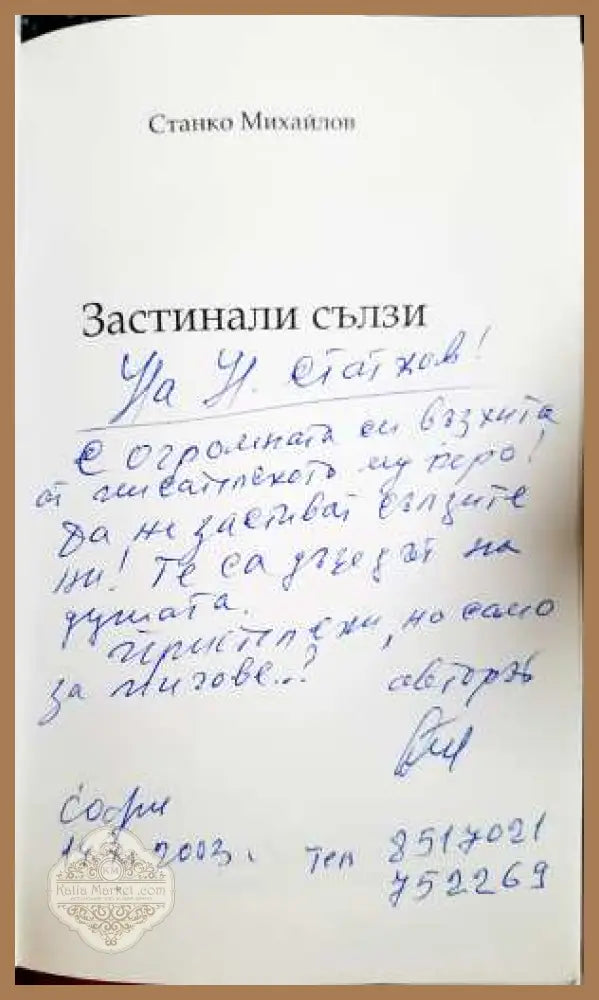 Станко Михайлов
Застинали сълзи
На Н. Статков!
С огромната си възхита
от писателското му перо!
Да не застиват сълзите
ни! Те са дъждът на
душата.
но само
за мигове..?
авторът
София
2003г. тел 8517021
752269
KM
Kalia Market.com